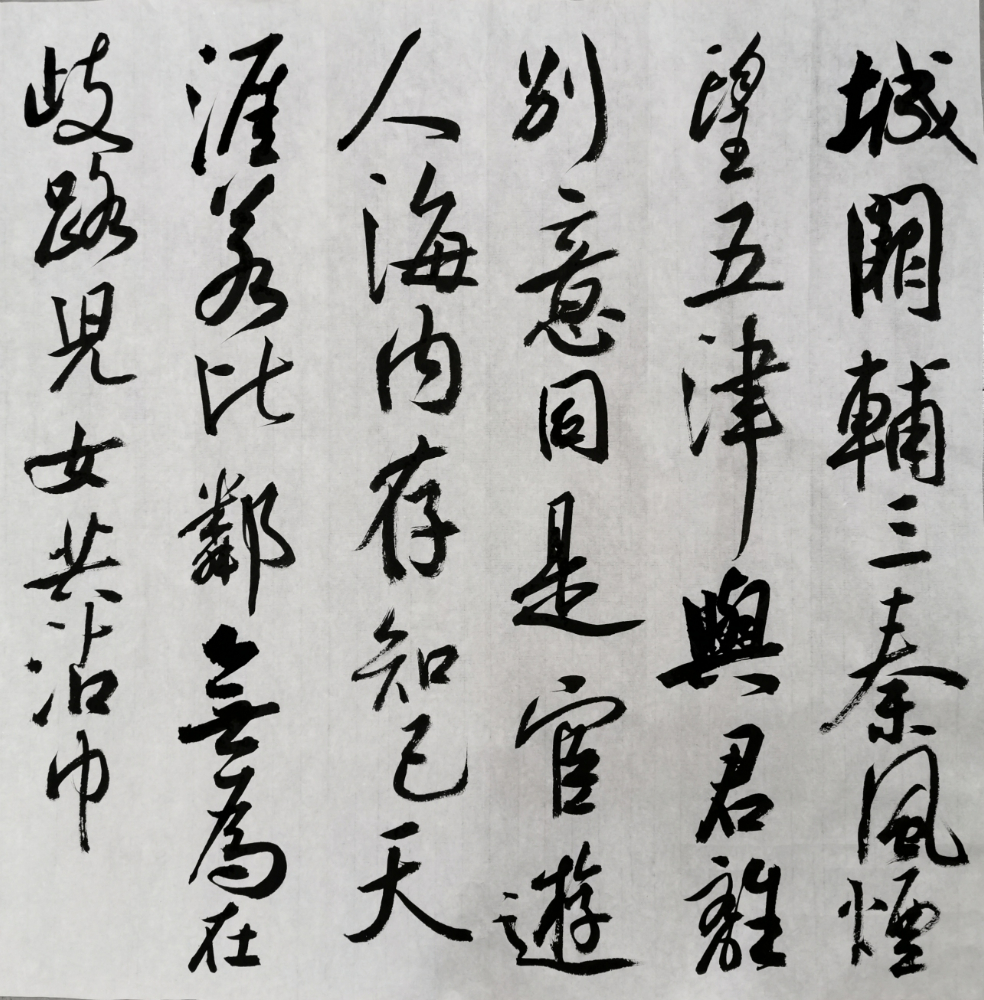 城闕輔三秦風煙
望五津與君離
別意同是宦遊
人海内存知己天
涯若比鄰無為在
歧路兒女共沾巾